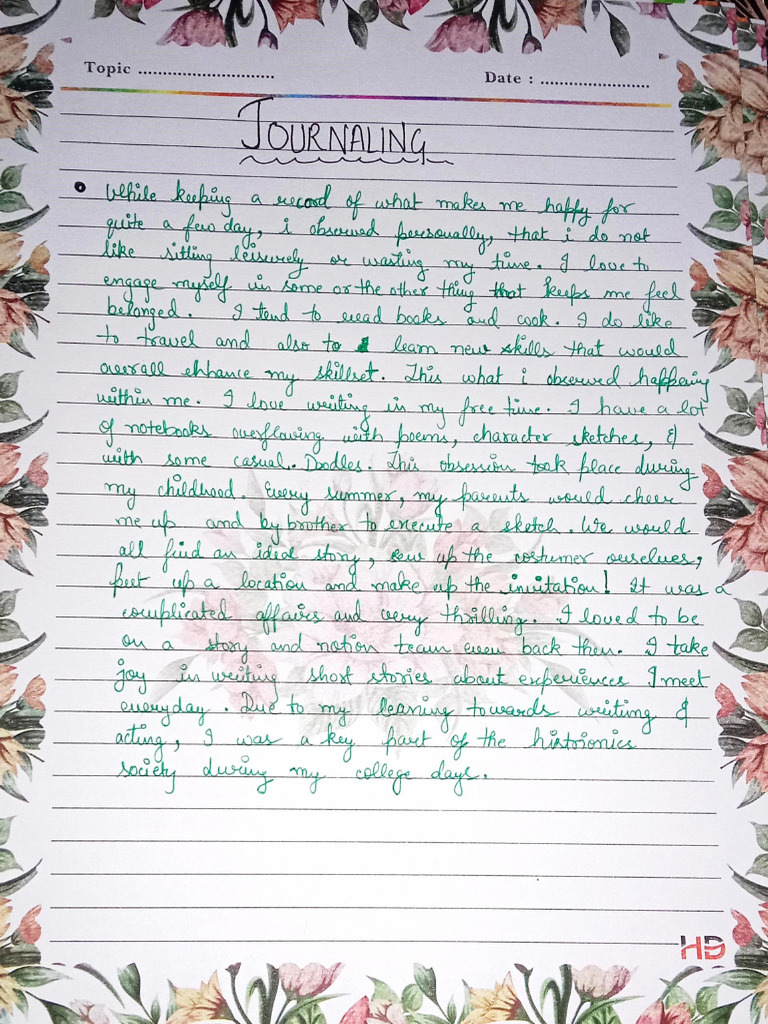 Topic ............................ Date : ........................
JOURNALING
While keeping a record of what makes me happy for
quite a few day, i observed personally, that i do not
like sitting leisurely or wasting my time. I love to
engage myself in some or the other thing that keeps me feel
belonged. I tend to read books and cook. I do like
to travel and also to learn new skills that would
overall ehhance my skillset. This what i observed happening
within me. I love writing in my free time. I have a lot
of notebooks overflowing with poems, character sketches, &
with some casual.. Doodles. This obsession took place during
my childhood. Every summer, my parents would cheer
me up and by brother to execute a sketch. We would
all find an ideal story, sew up the costumer ourselves,
put up a location and make up the invitation! It was a
complicated affairs and very thrilling. I loved to be
on a story and notion team even back then. I take
joy in writing short stories about experiences I meet
everyday. Due to my leaning towards writing &
acting, I was a key part of the histrionics
society during my college days.
HD